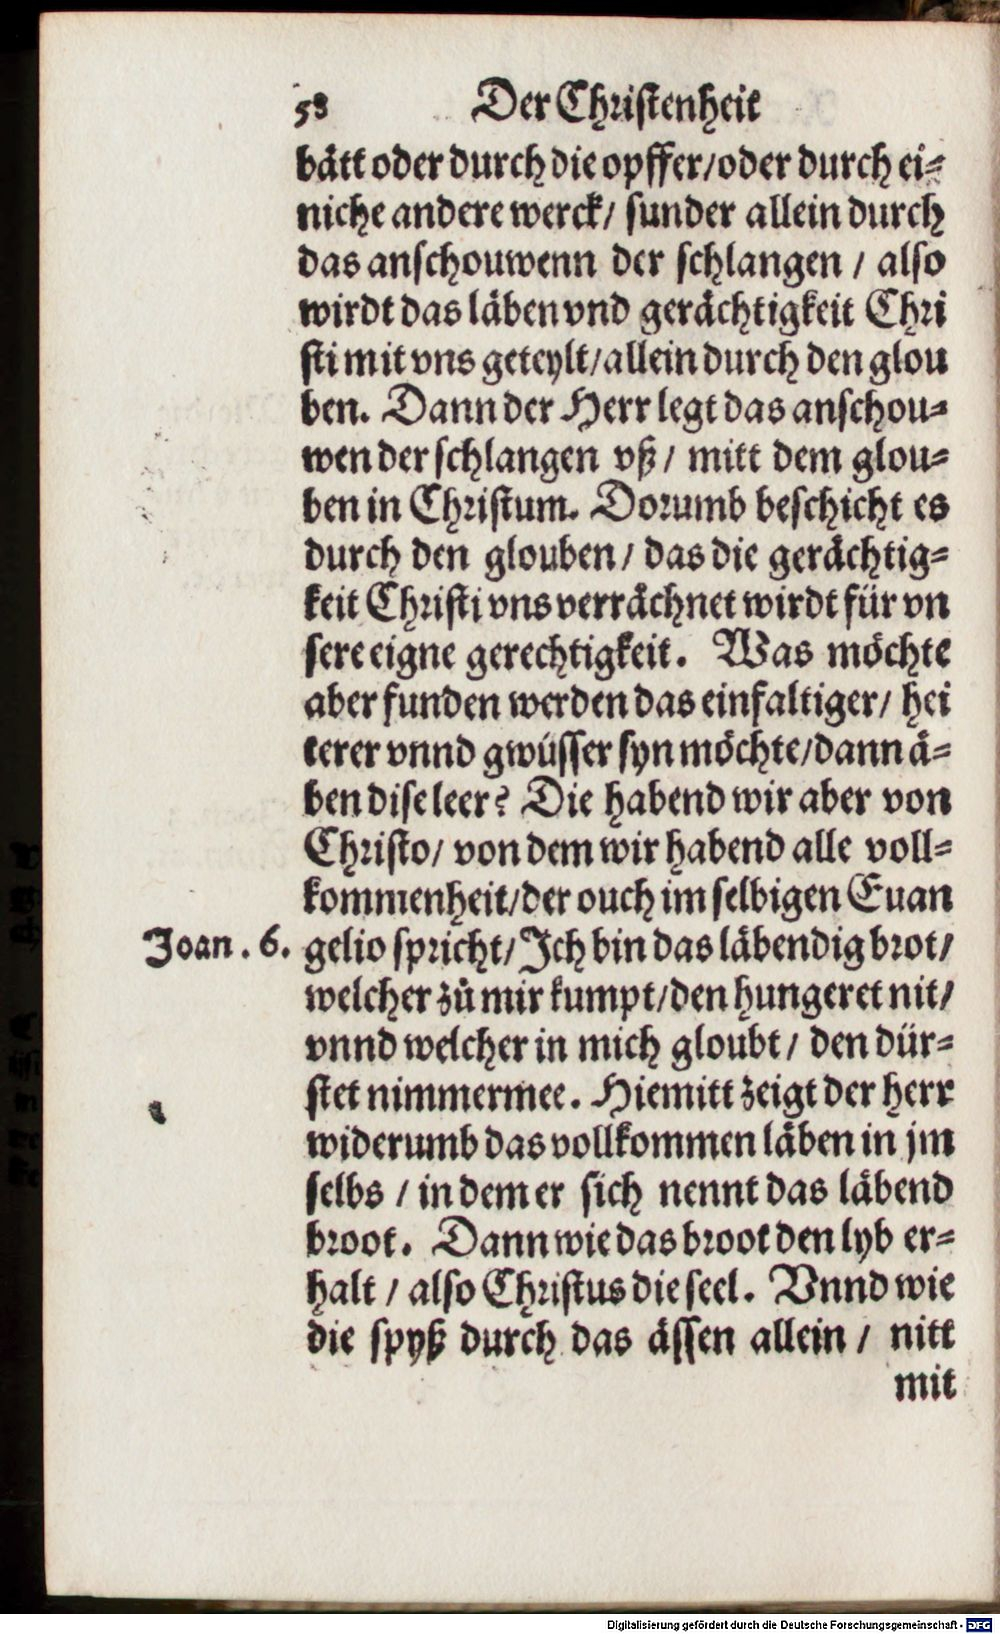 58 Der Christenheit
bätt oder durch die opffer/oder durch ei⸗
niche andere werck/ sunder allein durch
das anschouwenn der schlangen / also
wirdt das läben vnd gerächtigkeit Chri
sti mit vns geteylt/allein durch den glou
ben. Dann der Herr legt das anschou⸗
wen der schlangen vß/ mitt dem glou⸗
ben in Christum. Dorumb beschicht es
durch den glouben/ das die gerächtig⸗
keit Christi vns verrächnet wirdt für vn
sere eigne gerechtigkeit. Was möchte
aber funden werden das einfaltiger/ hei
terer vnnd gwüsser syn möchte/dann ä⸗
ben dise leer? Die habend wir aber von
Christo/ von dem wir habend alle voll⸗
kommenheit/der ouch im selbigen Euan
Joan. 6. gelio spricht/Ich bin das läbendig brot/
welcher zů mir kumpt/den hungeret nit/
vnnd welcher in mich gloubt/ den dür⸗
stet nimmermee. Hiemitt zeigt der herr
widerumb das vollkommen läben in jm
selbs / in dem er sich nennt das läbend
broot. Dann wie das broot den lyb er⸗
halt / also Christus die seel. Vnnd wie
die spyß durch das ässen allein / nitt
mit
Digitalisierung gefördert durch die Deutsche Forschungsgemeinschaft - DFG